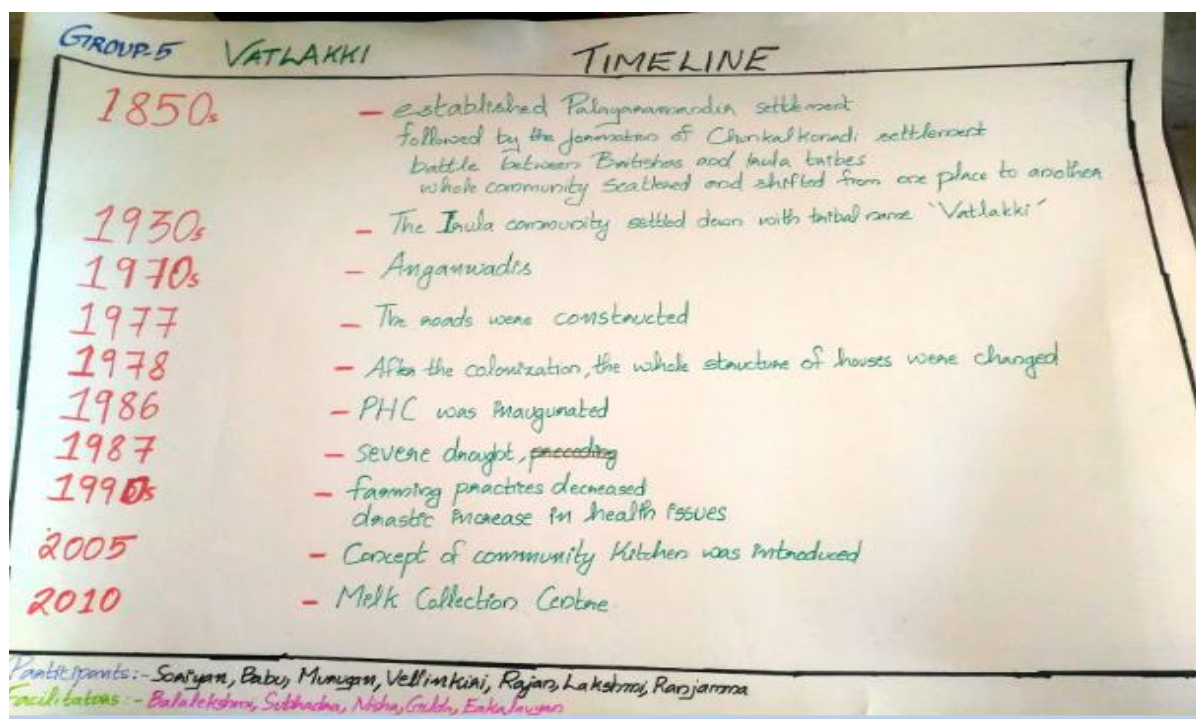 GROUP-5 VATLAKKI TIMELINE
1850s - established Palayanamandia settlement
followed by the formation of Chunkalkonadi settlement
battle between Britishas and Irula tribes
whole community scattered and shifted from one place to another
1930s - The Irula community settled down with tribal name 'Vatlakki'
1970s - Anganwadis
1977 - The roads were constructed
1978 - After the colonization, the whole structure of houses were changed
1986 - PHC was inaugurated
1987 - severe draught, preceeding
1990s - farming practices decreased
drastic increase in health issues
2005 - Concept of community Kitchen was introduced
2010 - Melk Collection Centre
Participants:- Soniyan, Babu, Murugan, Vellinkiri, Rajan, Lakshmi, Ranjamma
Facilitators:- Balalekshmi, Subhadra, Nisha,